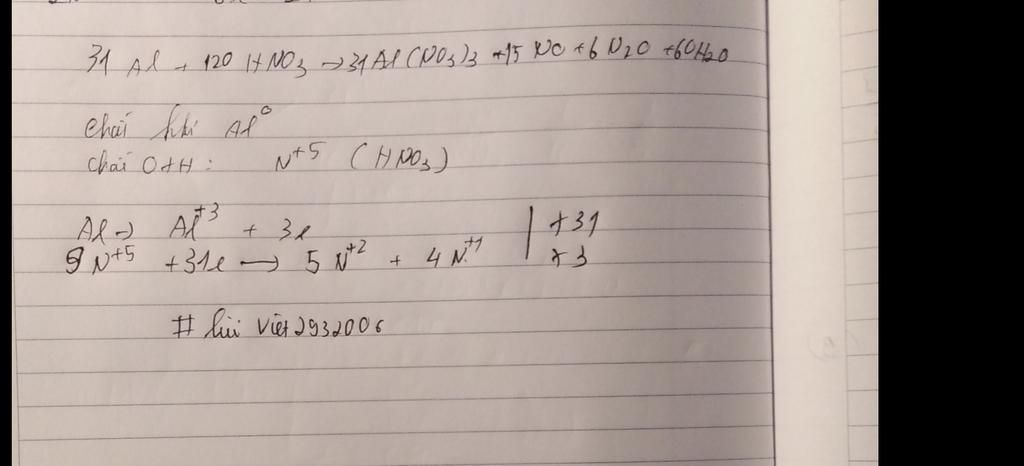 31 Al + 120 HNO3 → 31 Al(NO3)3 + 15 NO + 6 N2O + 60 H2O
chất khử Al⁰
chất OXH : N⁺⁵ (HNO3)
Al → Al⁺³ + 3e | x31
9N⁺⁵ + 31e → 5N⁺² + 4N⁺¹ | x3
# Việt2932006